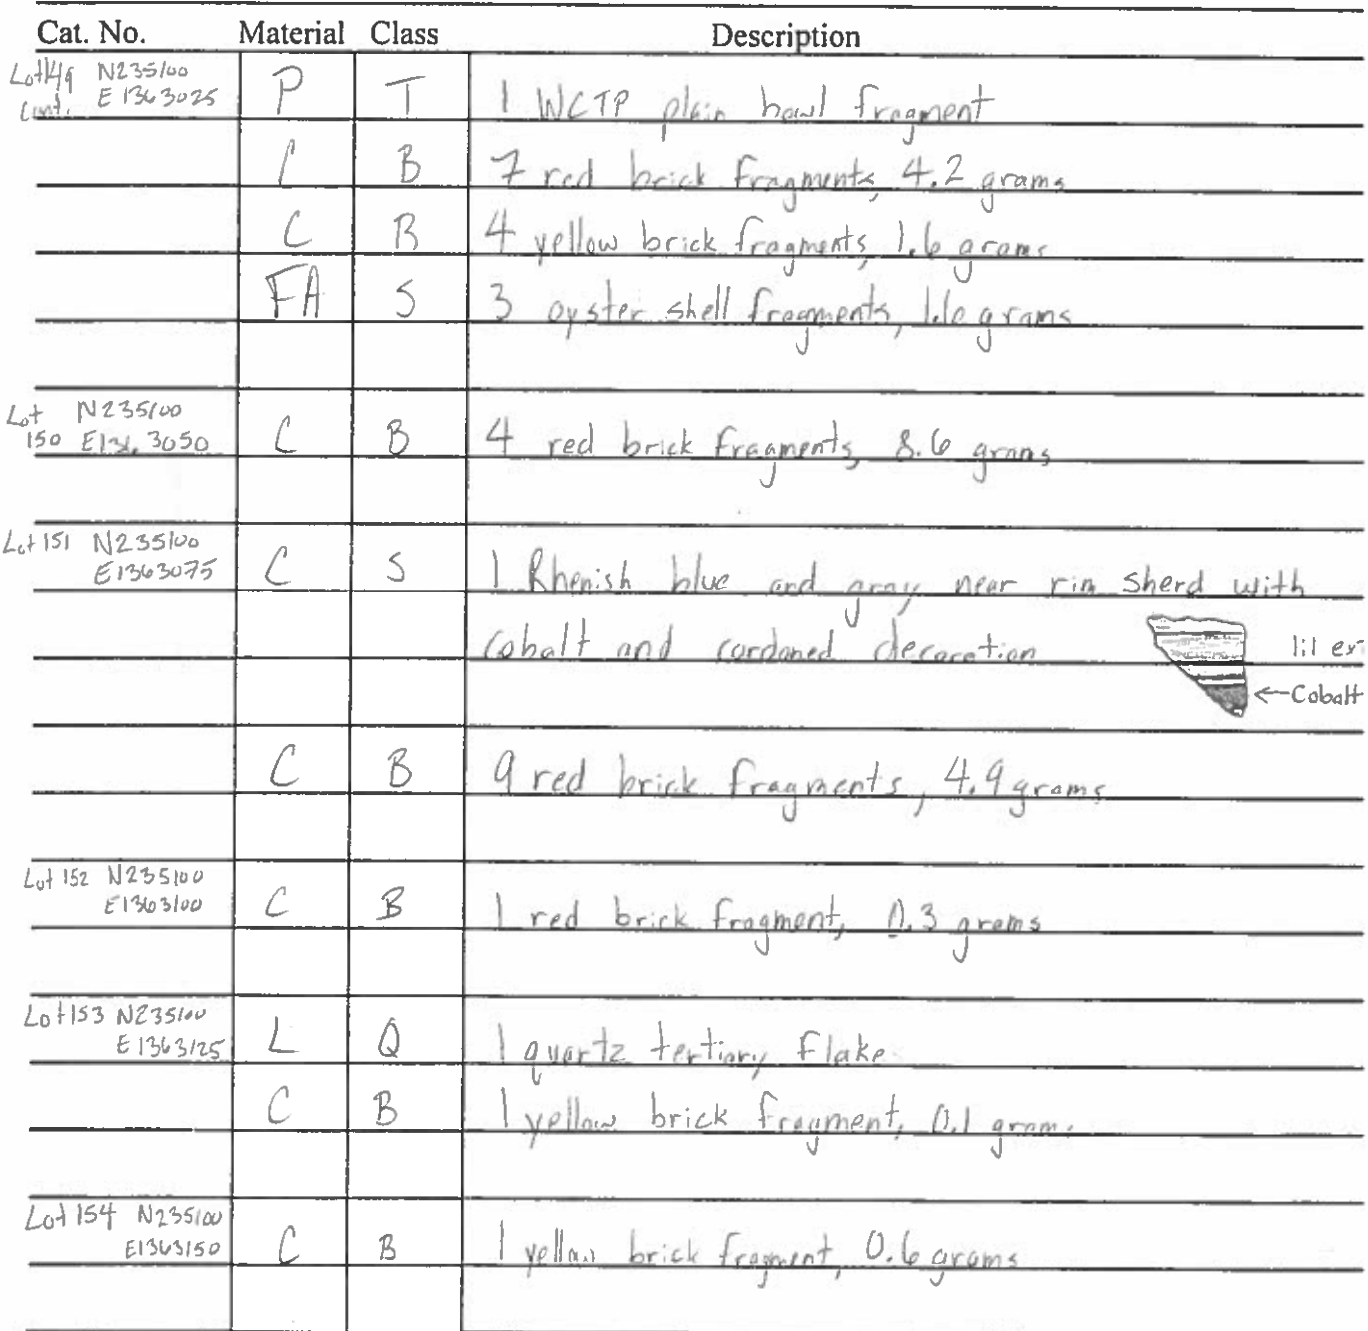 Cat. No. Material Class Description
Lot 149 N235100
Cont. E1363025 P T 1 WCTP plain bowl fragment
C B 7 red brick fragments, 4.2 grams
C B 4 yellow brick fragments, 1.6 grams
FA S 3 oyster shell fragments, grams
Lot N235100
150 E1363050 C B 4 red brick fragments, 8.6 grams
Lot 151 N235100
E1363075 C S 1 Rhenish blue and gray near rim sherd with
cobalt and cordoned decoration 1:1 ext
←Cobalt
C B 9 red brick fragments, 4.9 grams
Lot 152 N235100
E1363100 C B 1 red brick fragment, 0.3 grams
Lot 153 N235100
E1363125 L Q 1 quartz tertiary flake
C B 1 yellow brick fragment, 0.1 gram.
Lot 154 N235100
E1363150 C B 1 yellow brick fragment, 0.6 grams